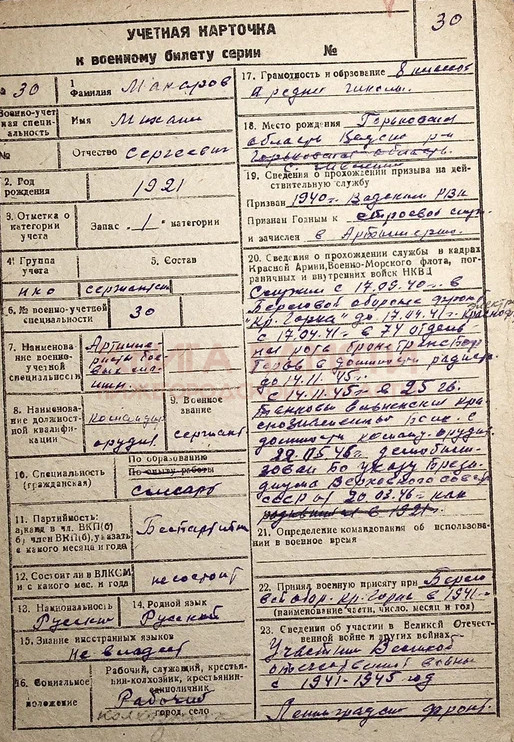 30
УЧЕТНАЯ КАРТОЧКА
к военному билету серии №
№ 30
1
Фамилия Макаров
Военно-учетная специальность
№
Имя Михаил
Отчество Сергеевич
2. Год
рождения 1921
3. Отметка о
категории
учета
Запас „1" категории
4. Группа
учета
5. Состав
сержантск
6. № военно-учетной
специальности 30
7. Наименование
военно-
учетной
специальности
8. Наименование
должностной
квалификации
Командир
орудия
9. Военное
звание
сержант
10. Специальность
(гражданская)
По образованию
По опыту работы
слесарь
11. Партийность:
а) канд. в чл. ВКП(б)
б) член ВКП(б), указать
с какого месяца и года
Беспартийн
12. Состоит ли в ВЛКСМ
и с какого мес. и года
не состоит
13. Национальность
Русский
14. Родной язык
Русский
15. Знание иностранных языков
Не владеет
16. Социальное
положение
Рабочий, служащий, крестья-
нин-колхозник, крестьянин-
единоличник
Рабочий
город, село
17. Грамотность и обрзование 8 классов
средней школы
18. Место рождения Горьковская
область Вадский р-н
Горьковская область
19. Сведения о прохождении призыва на дей-
ствительную службу
Призван 1940 г. Вадским РВК
Признан Годным к строевой служ
и зачислен в Артиллерию
20. Сведения о прохождении службы в кадрах
Красной Армии, Военно-Морского флота, пог-
раничных и внутренних войск НКВД
Служил с 17.09.40 г. в
Береговой обороне форт
"Кр. Горка" до 17.04.41 г.
с 17.04.41 в 74 отдель
ной
в должности радиста
до 14.11.45 г.
с 14.11.45 г. в 25 гв.
Танковом
краснознаменном с
должности команд. орудия
29.05.46 г. демобили-
зован по указу Прези-
диума Верховного совета
СССР от 20.03.46 г. как
21. Определение командования об использова-
нии в военное время
22. Принял военную присягу при Берего
вой обор. Кр. Горка в 1941 г.
(наименование части, число, месяц и год)
23. Сведения об участии в Великой Отечест-
венной войне и других войнах
Участник Великой
отечественной войны
с 1941-1945 год
Ленинградский фронт.